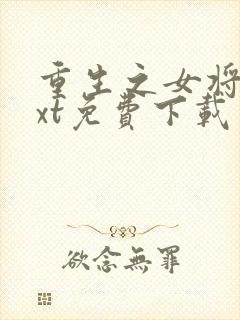 重生之女将
xt免費下載
欲念無罪